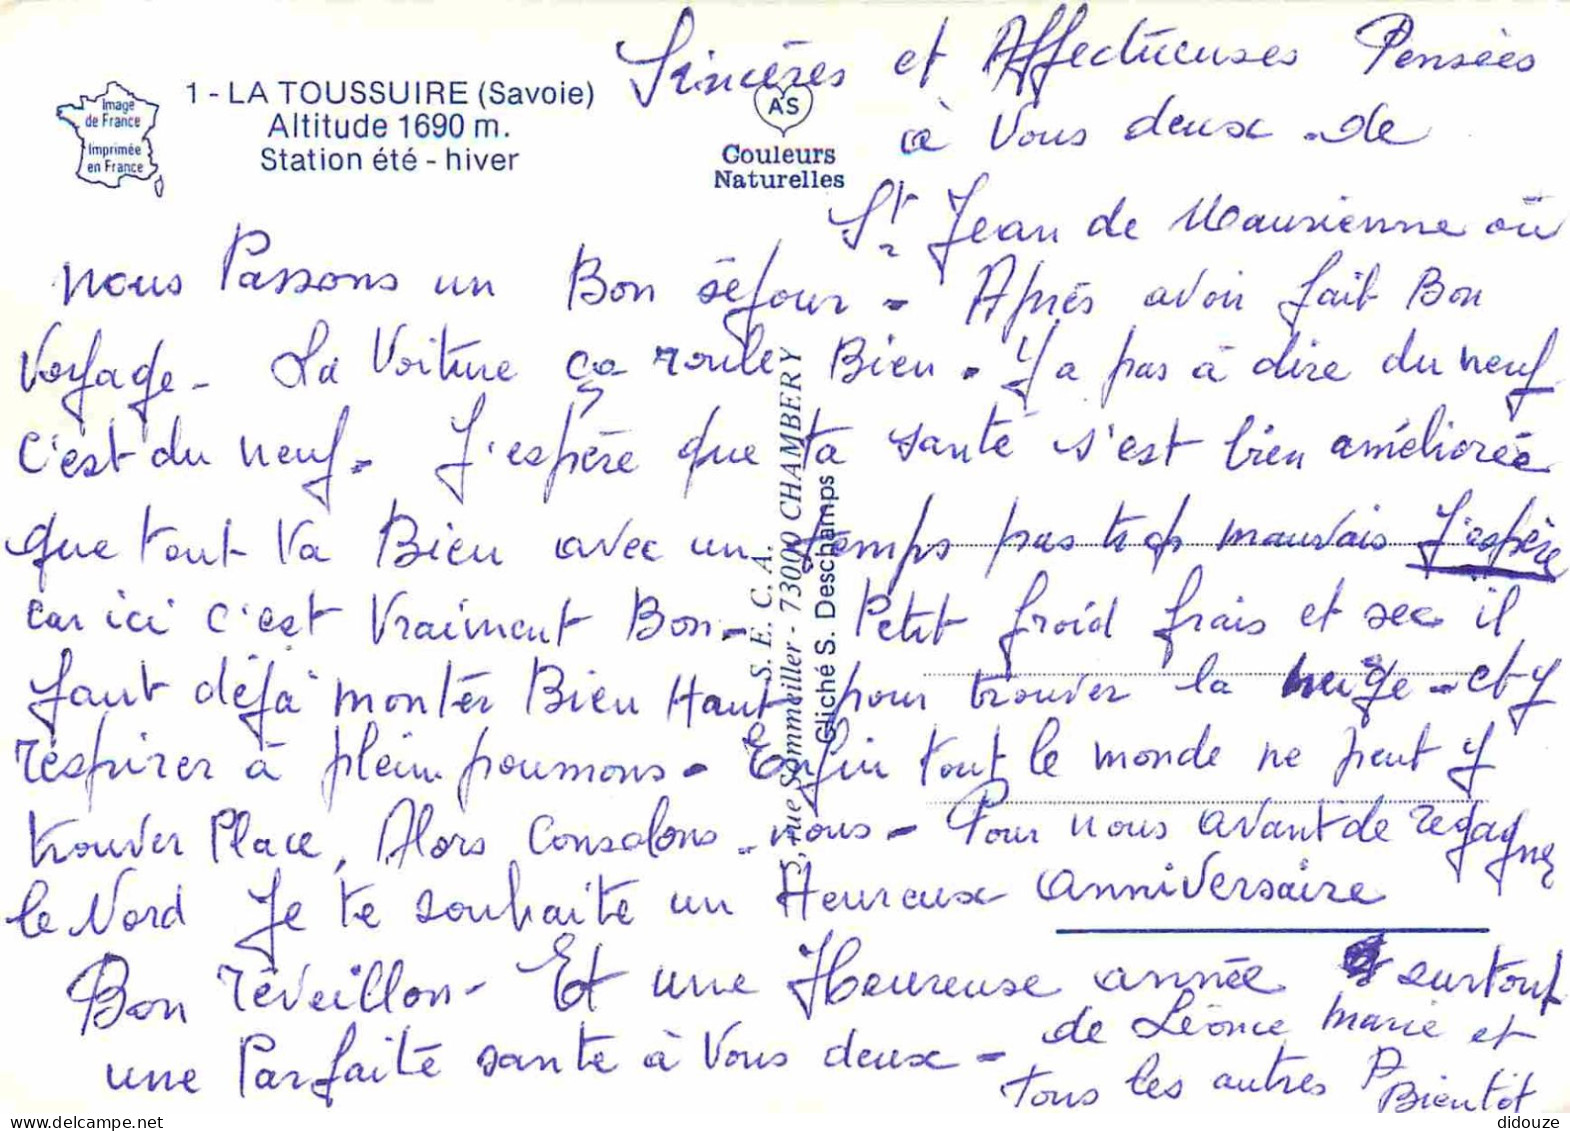 Image
de France
Imprimée
en France
1 - LA TOUSSUIRE (Savoie)
Altitude 1690 m.
Station été - hiver
AS
Couleurs
Naturelles
S. E. C. A.
rue Sommeiller - 73000 CHAMBERY
Cliché S. Deschamps
Sincères et Affectueuses Pensées
à Vous deux - de
St Jean de Maurienne où
nous Passons un Bon séjour - Après avoir fait Bon
Voyage - La Voiture ça roule Bien - Y a pas à dire du neuf
c'est du neuf - J'espère que ta santé s'est bien améliorée
que tout Va Bien avec un temps pas trop mauvais J'espère
car ici c'est Vraiment Bon - Petit froid frais et sec il
faut déjà montér Bien Haut pour trouver la neige - et y
réspirer à plein poumons - Enfin tout le monde ne peut y
trouver Place, Alors Consolons-nous - Pour nous avant de regagner
le Nord Je te souhaite un Heureux anniversaire
Bon réveillon - Et une Heureuse année surtout
une Parfaite santé à Vous deux -
de Léonce Marie et
tous les autres A
Bientôt
didouze